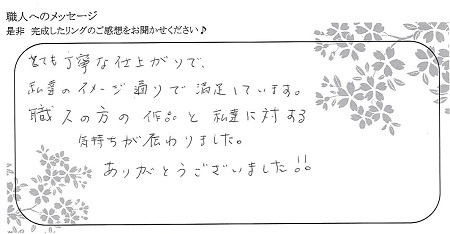 職人へのメッセージ
是非 完成したリングのご感想をお聞かせください♪
とても丁寧な仕上がりで、
私達のイメージ通りで満足しています。
職人の方の作品と私達に対する
気持ちが伝わりました。
ありがとうございました!!